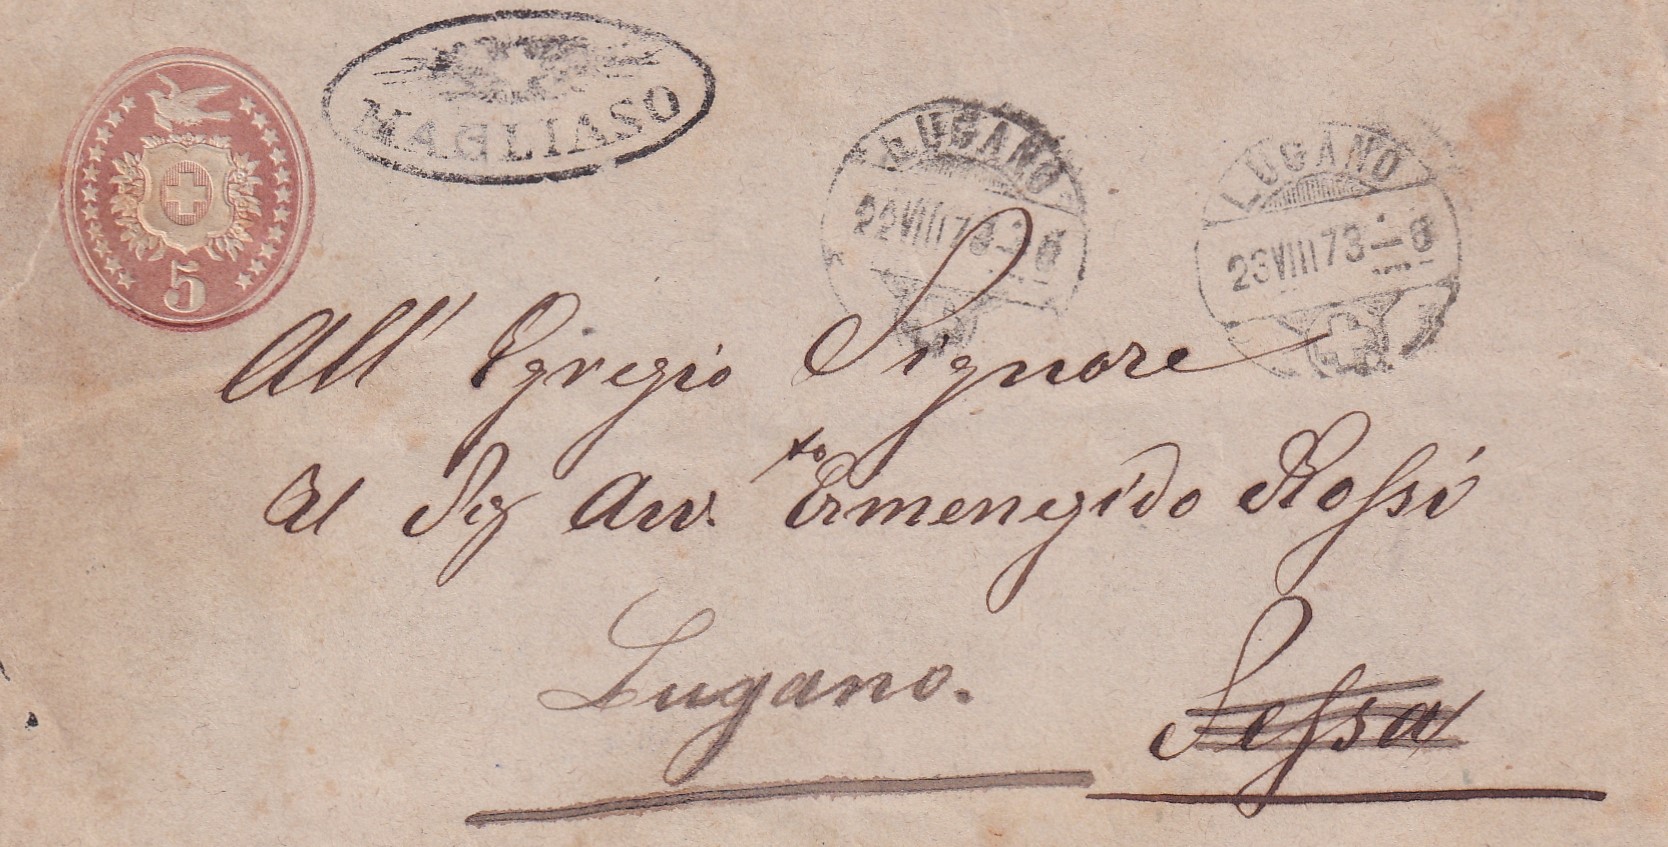 5
MAGLIASO
LUGANO
22VIII73
LUGANO
23VIII73
All' Egregio Signore
Al Sig Avv.to Ermenegido Rossi
Lugano.
Sessa